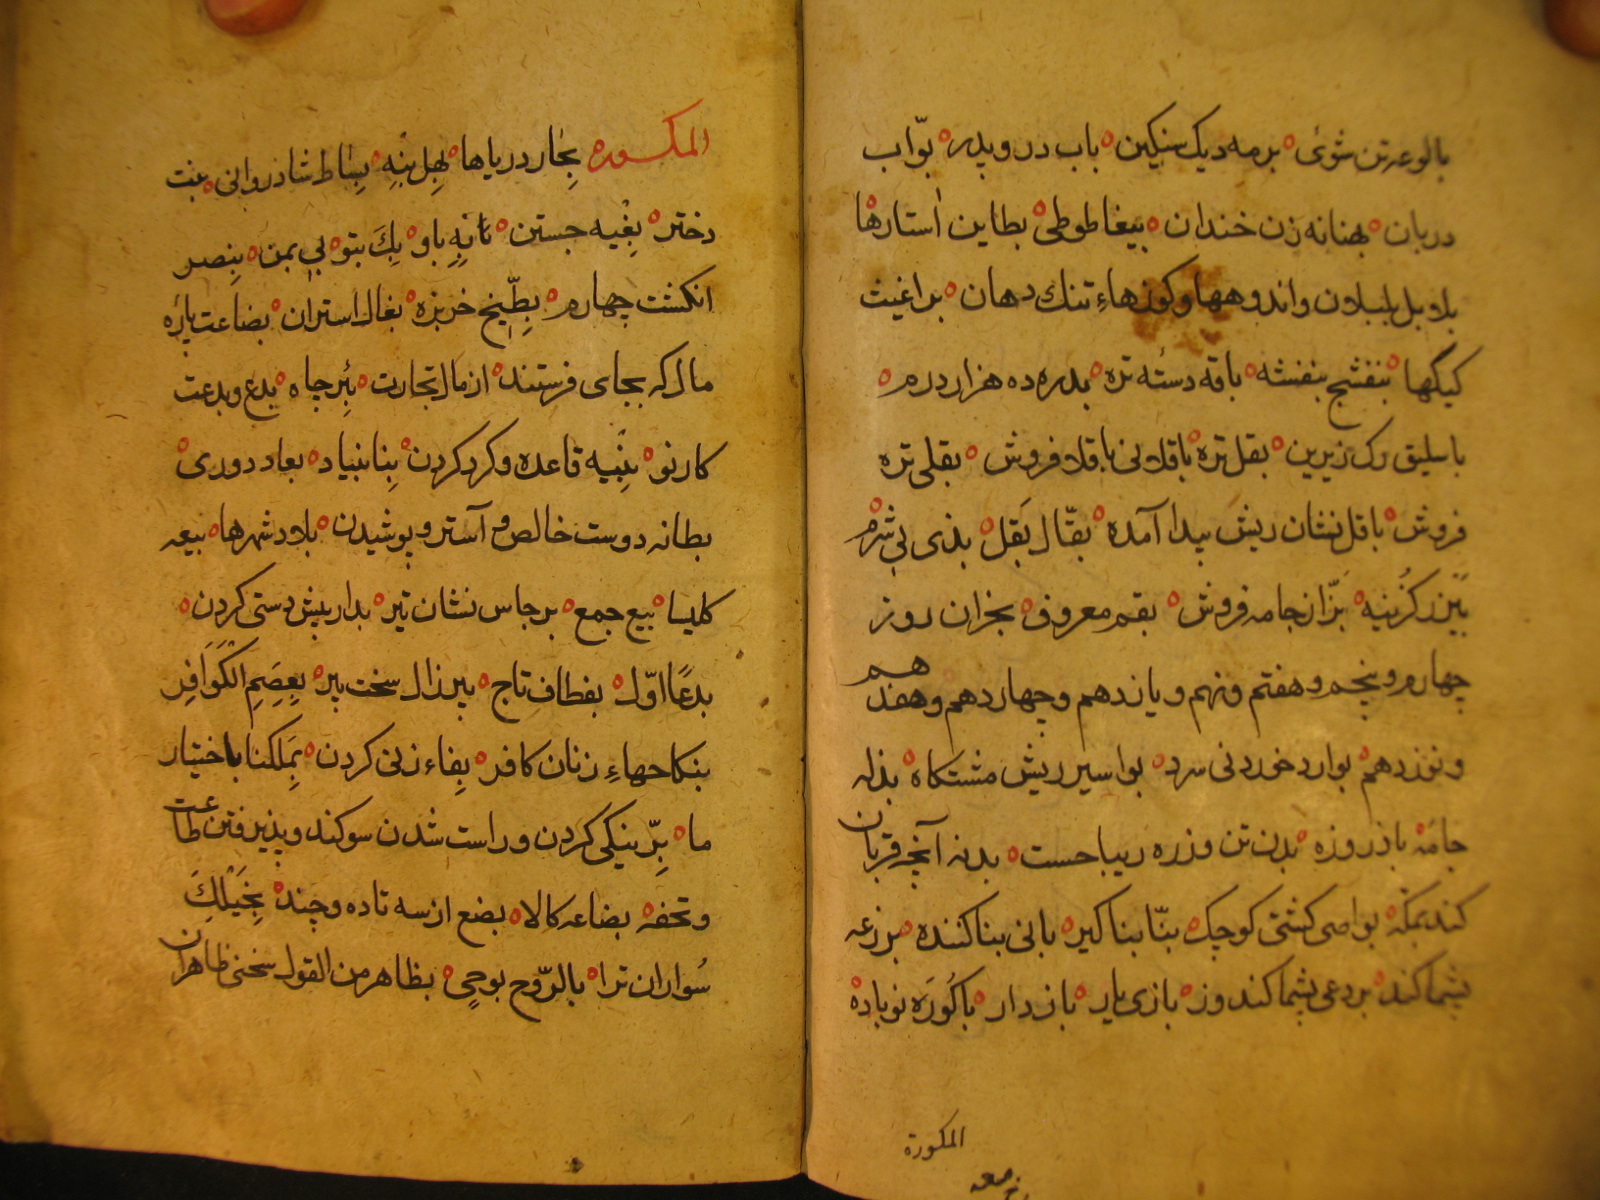 بالوعه تن شوئی برمه دیک سنکین باب در و پدر بوّاب
دربان بهنانه زن خندان ببغا طوطی بطاین استارها
بلابل بلبلان واندوهها وکوزهاءِ تنك دهان براغیث
کیکها بنفشج بنفشه باقه دسته تره بدره ده هزار درم
باسلیق رک زیرین بقل تره باقلانی باقلا فروش بقلی تره
فروش باقل نشان ریش پیدا آمده بقّال بَقل بذی بی شرم
بَزر کزینه بزّاز جامه فروش بقم معروف بحران روز
چهارم و پنجم و هفتم و نهم و یازدهم و چهاردهم و هفدهم
و نوزدهم بوارد خوردنی سرد بواسیر ریش مشتکاه بذله
جامه باذروزه بدن تن و زره زیبا جست بدنه آنچه قربان
کنند بمکه بواصی کشتی کوچک بنّا بناکیر بانی بنا کننده بزرعه
پشماکند بردعی پشماکند وز بازی یار بازدار باکُورَه نوباده
المکورة
المکسوره بِحار دریاها بِهِل بنِه بِساط شاذروانی بنت
دختر بِغْیه جستن بَانِهِ باو بِكَ بتو بی بمن بِنصر
انکشت چهارم بِطّیخ خربزه بغال استران بضاعت پارهٔ
مال که بجای فرستند از مال تجارت بِئر چاه بدع و بدعت
کار نو بِنْیه قاعده و کرد کردن بِنا بنیاد بعاد دوری
بطانه دوست خالص و آستر و پوشیدن بلاد شهرها بیعه
کلیسا بیع جمع برجاس نشان تیر بدار پیش دستی کردن
بدعًا اوّل بفطاف تاج پیرزال سخت پیر بِعِصَمِ الْکَوَافِرِ
بنکاحهاءِ زنان کافر بِغاء زنی کردن بِمَلکنا باختیار
ما بِرّ نیکی کردن و راست شدن سوکند و پذیرفتن طاعت
و تحفه بضاعه کالا بضع از سه تا ده و چند بِخَیْلِكَ
سُواران ترا بالرّوح بوحی بظاهر من القول سخنی ظاهران